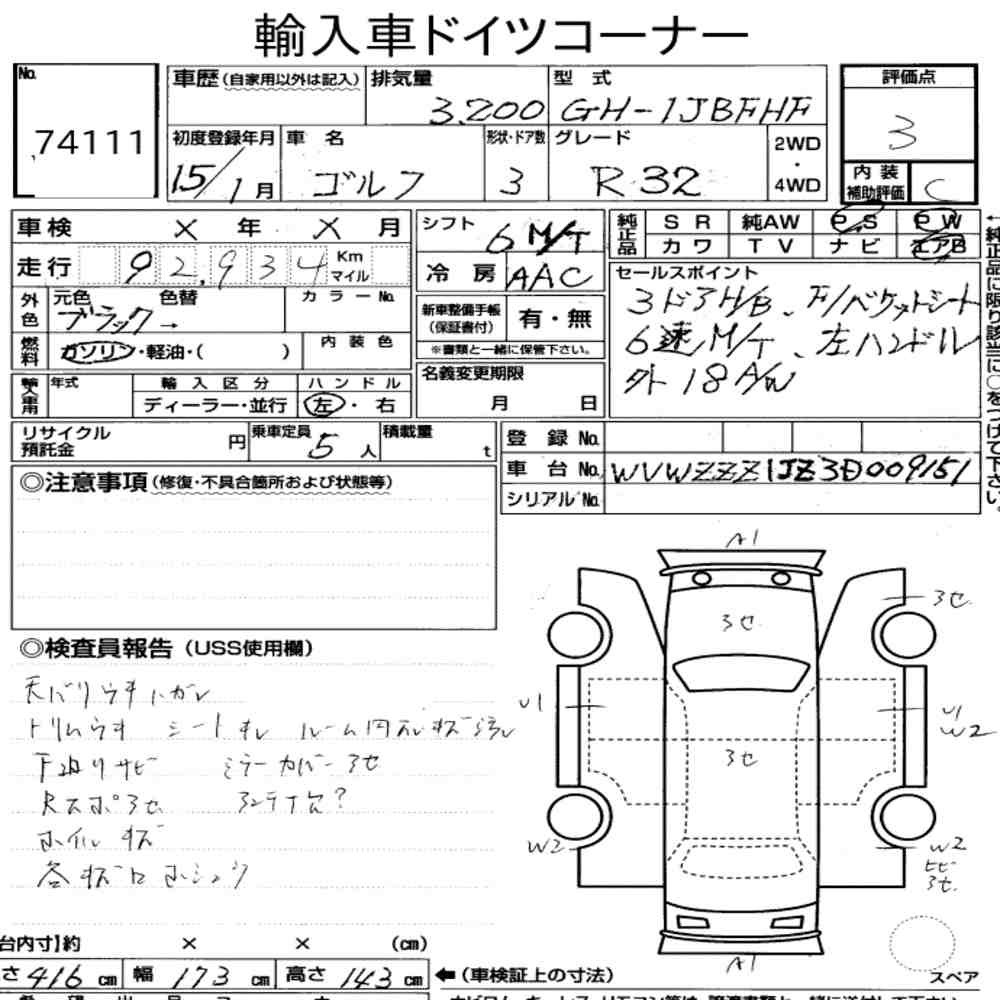 輸入車ドイツコーナー
No.
74111
車歴(自家用以外は記入)
排気量
3.200
型 式
GH-1JBFHF
評価点
3
初度登録年月
15/1月
車 名
ゴルフ
形状・ドア数
3
グレード
R32
2WD
・
4WD
内 装
補助評価
C
車検 × 年 × 月
シフト
6 M/T
純正品
S R 純AW P.S P W
カ ワ T V ナ ビ エアB
走行 92,934 Km
マイル
冷 房 AAC
セールスポイント
3ドアH/B、F/バケットシート
6速M/T、左ハンドル
外 18 A/W
外色
元色 色替 カ ラ ー No.
ブラック→
新車整備手帳
(保証書付)
有・無
※書類と一緒に保管下さい。
燃料
ガソリン・軽油・( )
内 装 色
年式
輸 入 区 分
ディーラー・並行
ハ ン ド ル
左・右
名義変更期限
月 日
リサイクル
預託金
円
乗車定員 5 人
積載量 t
登 録 No.
車 台 No. WVWZZZ1JZ3D009151
シリアル No.
←純正品に限り該当に○をつけて下さい。
◎注意事項(修復・不具合箇所および状態等)
◎検査員報告(USS使用欄)
天バリウキハガレ
トリムウキ シートキレ ルーム内 キズ汚レ
下廻リサビ ミラーカバー3セ
Rスポ3セ アンテナ欠?
ホイルキズ
各キズ
A1
3セ
3セ
U1
U1
W2
3セ
W2
W2
ヒビ
3セ
A1
スペア
台内寸】約 × × (cm)
さ 416 cm 幅 173 cm 高さ 143 cm
←(車検証上の寸法)